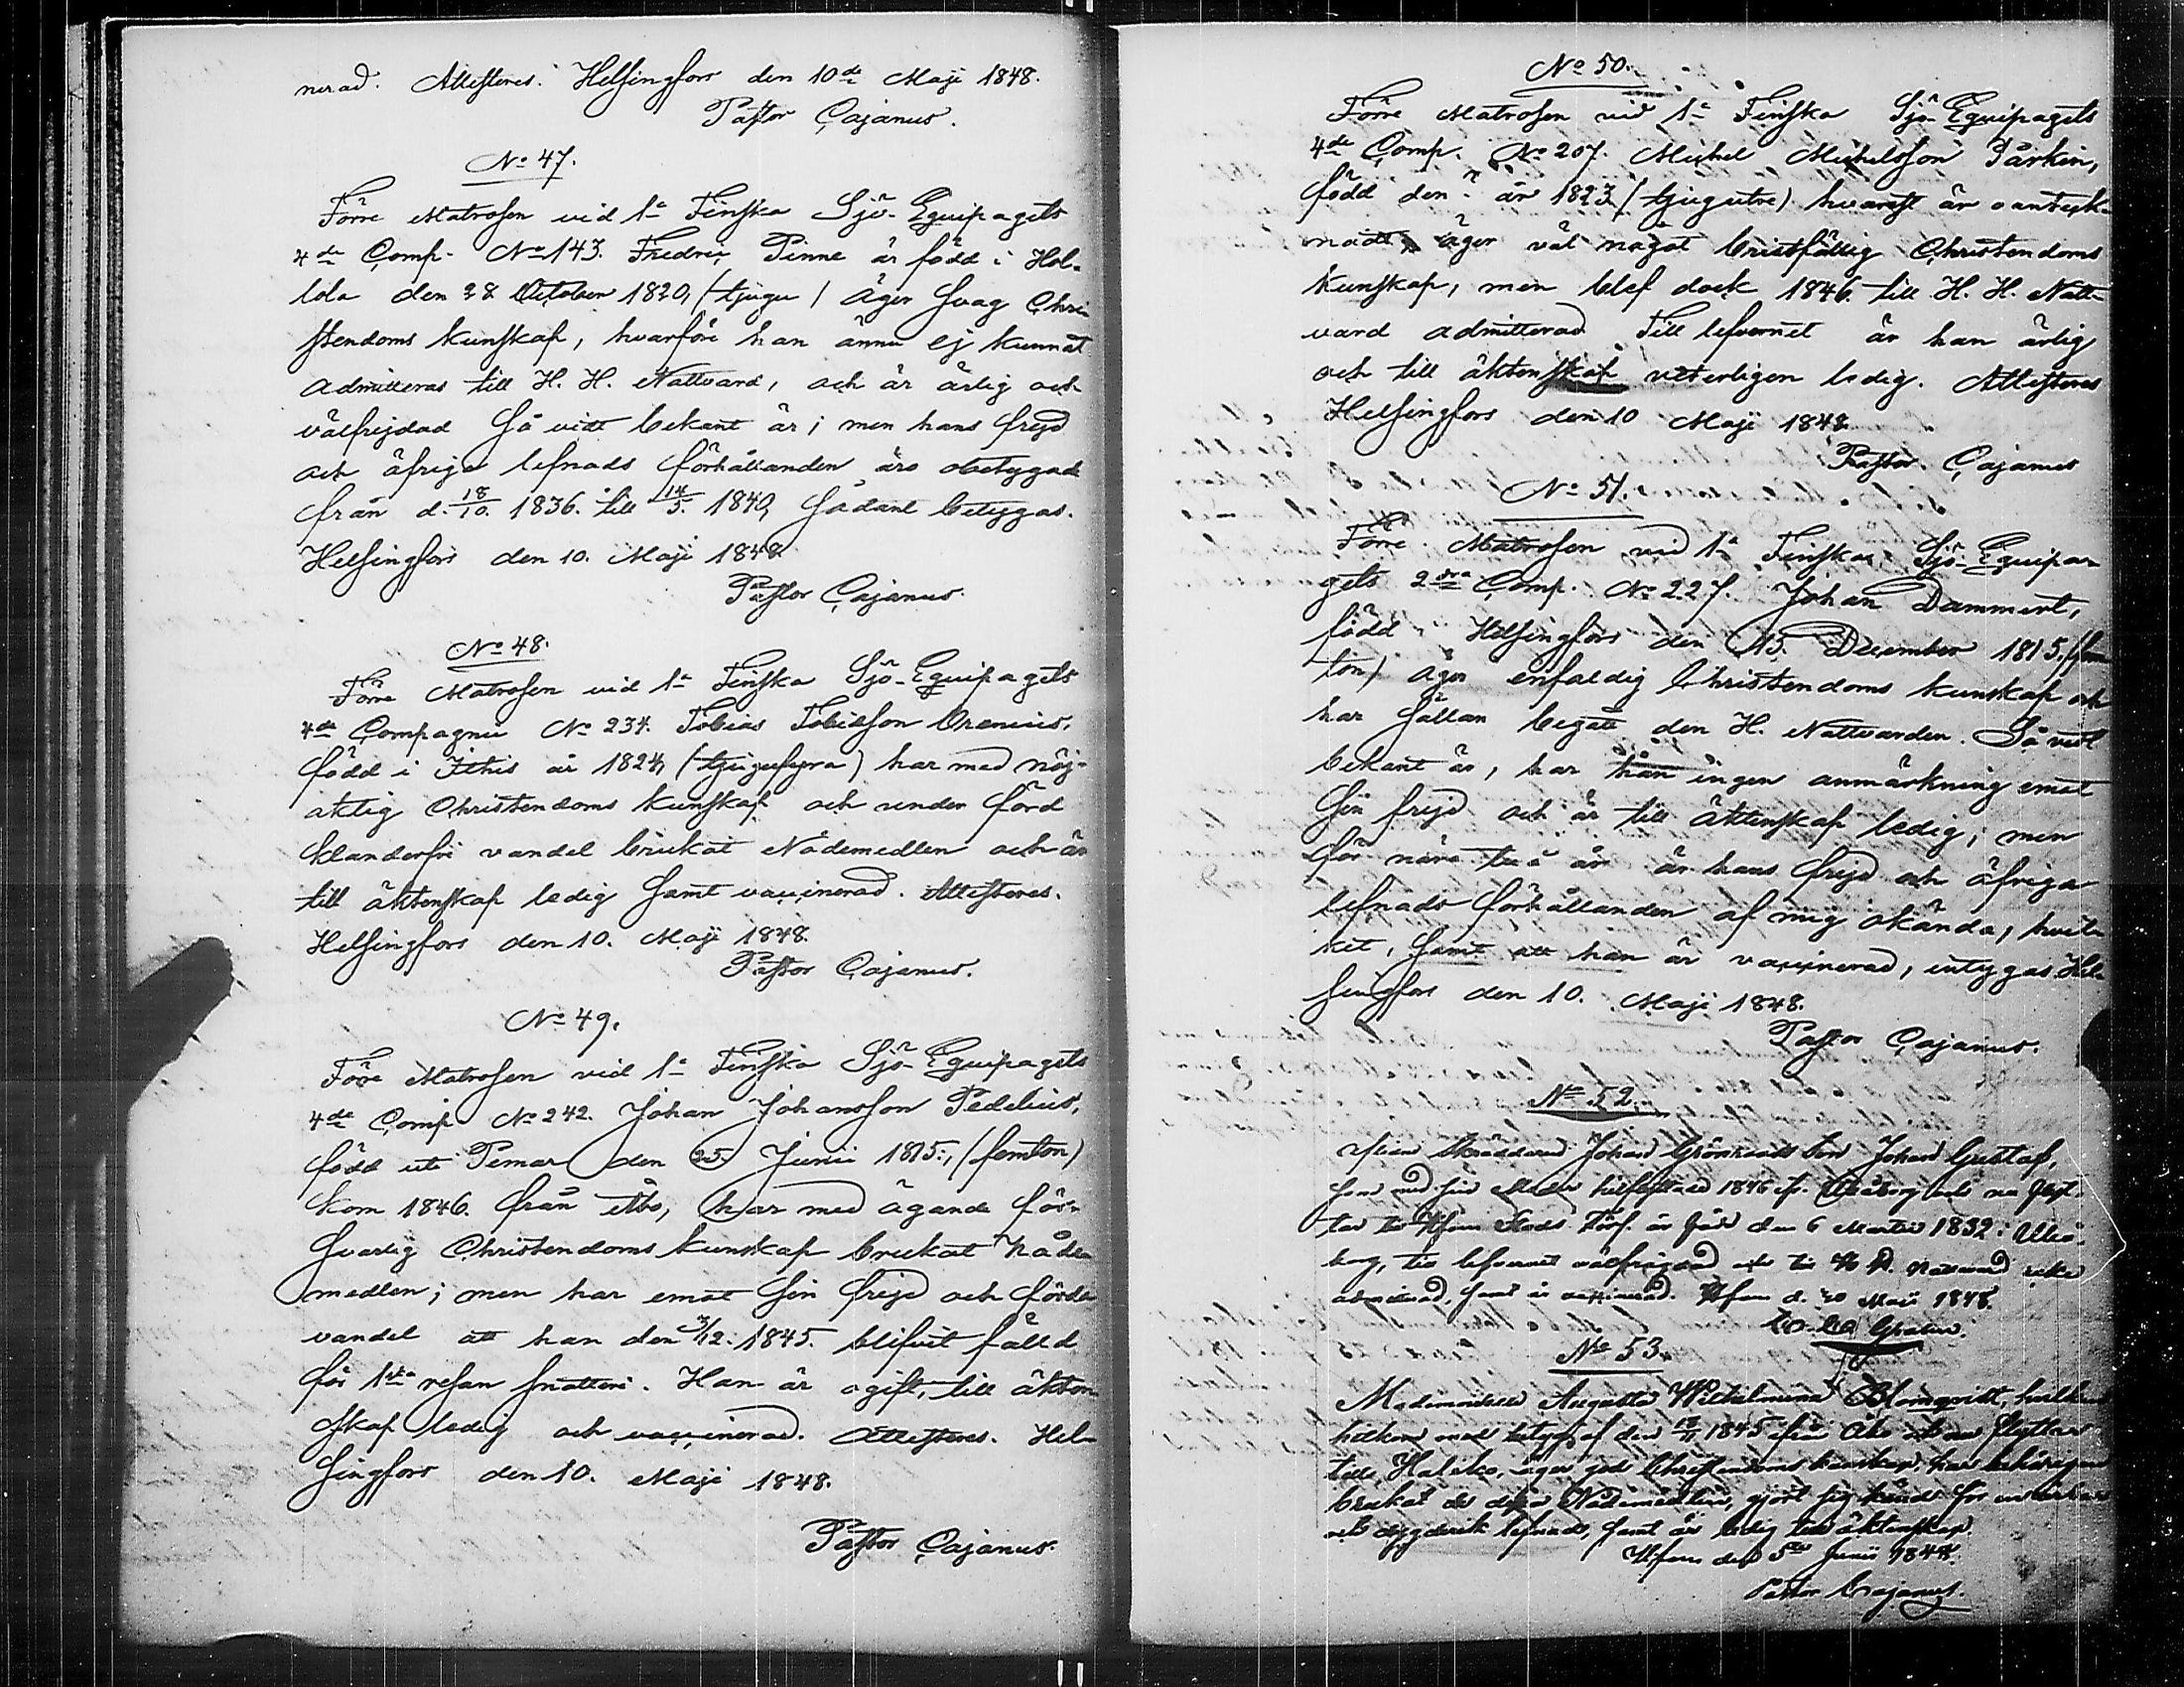 nerad. Attesteras. Helsingfors den 10de Maji 1848.
Pastor Cajanus.
No 47.
Förre Matrosen vid 1a Finska Sjö-Equipagets
4de Comp. No 143. Fredric Pinne är född i Hol-
lola den 28 October 1820, (tjugu) äger svag Chri-
stendoms kunskap, hvarföre han ännu ej kunnat
admitteras till H. H. Nattvard, och är ärlig och
välfrejdad så vidt bekant är; men hans frejd
och öfriga lefnads förhållanden äro obetygade
från d. 18/10. 1836. till 14/5. 1840, Sådant betygas.
Helsingfors den 10. Maji 1848.
Pastor Cajanus.
No 48.
Förre Matrosen vid 1a Finska Sjö-Equipagets
4de Compagnie No 234. Tobias Tobiasson Orenius,
född i Ithis år 1824, (tjugufyra) har med nöj-
aktig Christendoms kunskap och under förd
klanderfri vandel brukat Nådemedlen och är
till äktenskap ledig samt vaccinerad. Attesteras.
Helsingfors den 10. Maji 1848.
Pastor Cajanus.
No 49.
Förre Matrosen vid 1a Finska Sjö-Equipagets
4de Comp No 242. Johan Johansson Pedelius,
född uti Pemar den 25. Junii 1815., (femton)
kom 1846. från Åbo, har med ägande för-
svarlig Christendoms kunskap brukat nåde
medlen; men har emot sin frejd och förda
vandel att han den 3/12. 1845. blifvit fälld
för 1sta resan snatteri. Han är ogift, till äkten-
skap ledig och vaccinerad. Attesteras. Hel-
singfors den 10. Maji 1848.
Pastor Cajanus.
No 50.
Förre Matrosen vid 1a Finska Sjö-Equipagets
4de Comp. No 207. Michel Michelsson Pärkin,
född den ? år 1823 (tjugutre) hvarest är oanteck-
nadt, äger väl något bristfällig Christendoms
kunskap, men blef dock 1846. till H. H. Natt-
vard admitterad Till lefvernet är han ärlig
och till äktenskap veterligen ledig. Attesteras
Helsingfors den 10 Maji 1848.
Pastor. Cajanus
No 51.
Förre Matrosen vid 1a Finska Sjö-Equipa-
gets 2dra Comp. No 227. Johan Dammert,
född i Helsingfors den 15. December 1815, (fem-
ton) äger enfaldig Christendoms kunskap och
har sällan begått den H. Nattvarden. Så vidt
bekant är, har han ingen anmärkning emot
sin frejd och är till äktenskap ledig; men
för nära två år är hans frejd och öfriga
lefnads förhållanden af mig okända, hvil-
ket, samt att han är vaccinerad, intygas. Hel-
singfors den 10. Maji 1848.
Pastor Cajanus.
No 52.
Skräddaren Johan Grönvalls son Johan Gustaf,
som med sin Moder 1846 fr. Uleåborg och nu flyt-
tar till Hfors Stads Förs. är född den 6 Martii 1832 i Uleå-
borg, till lefvernet välfrejdad och till H. H. Nattvard icke
admitterad, samt är vaccinerad. Hfors d. 20 Maji 1848.
No 53.
Mademoiselle Augusta Wilhelmina Blomqvist, hvilken
hitkom med betyg af den 1845 från Åbo och nu flyttar
till Haliko, äger god Christendoms kunskap, har behörigen
brukat de dyra Nådemedlen, gjort sig känd för en
och dygderik lefnad, samt är ledig till äktenskap.
Hfors den 5te Junii 1848.
Pastor Cajanus.